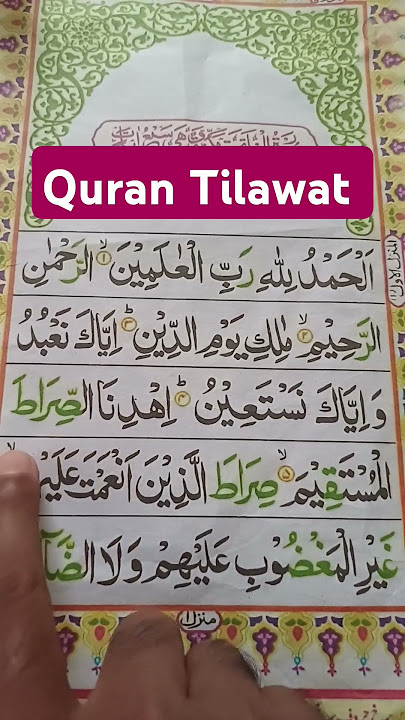 Quran Tilawat
اَلْحَمْدُ لِلّٰهِ رَبِّ الْعٰلَمِیْنَ ۙ۝۱ الرَّحْمٰنِ
الرَّحِیْمِ ۙ۝۲ مٰلِكِ یَوْمِ الدِّیْنِ ؕ۝۳ اِیَّاكَ نَعْبُدُ
وَ اِیَّاكَ نَسْتَعِیْنُ ؕ۝۴ اِهْدِنَا الصِّرَاطَ
الْمُسْتَقِیْمَ ۙ۝۵ صِرَاطَ الَّذِیْنَ اَنْعَمْتَ
غَیْرِ الْمَغْضُوْبِ عَلَیْهِمْ وَ لَا
منزل